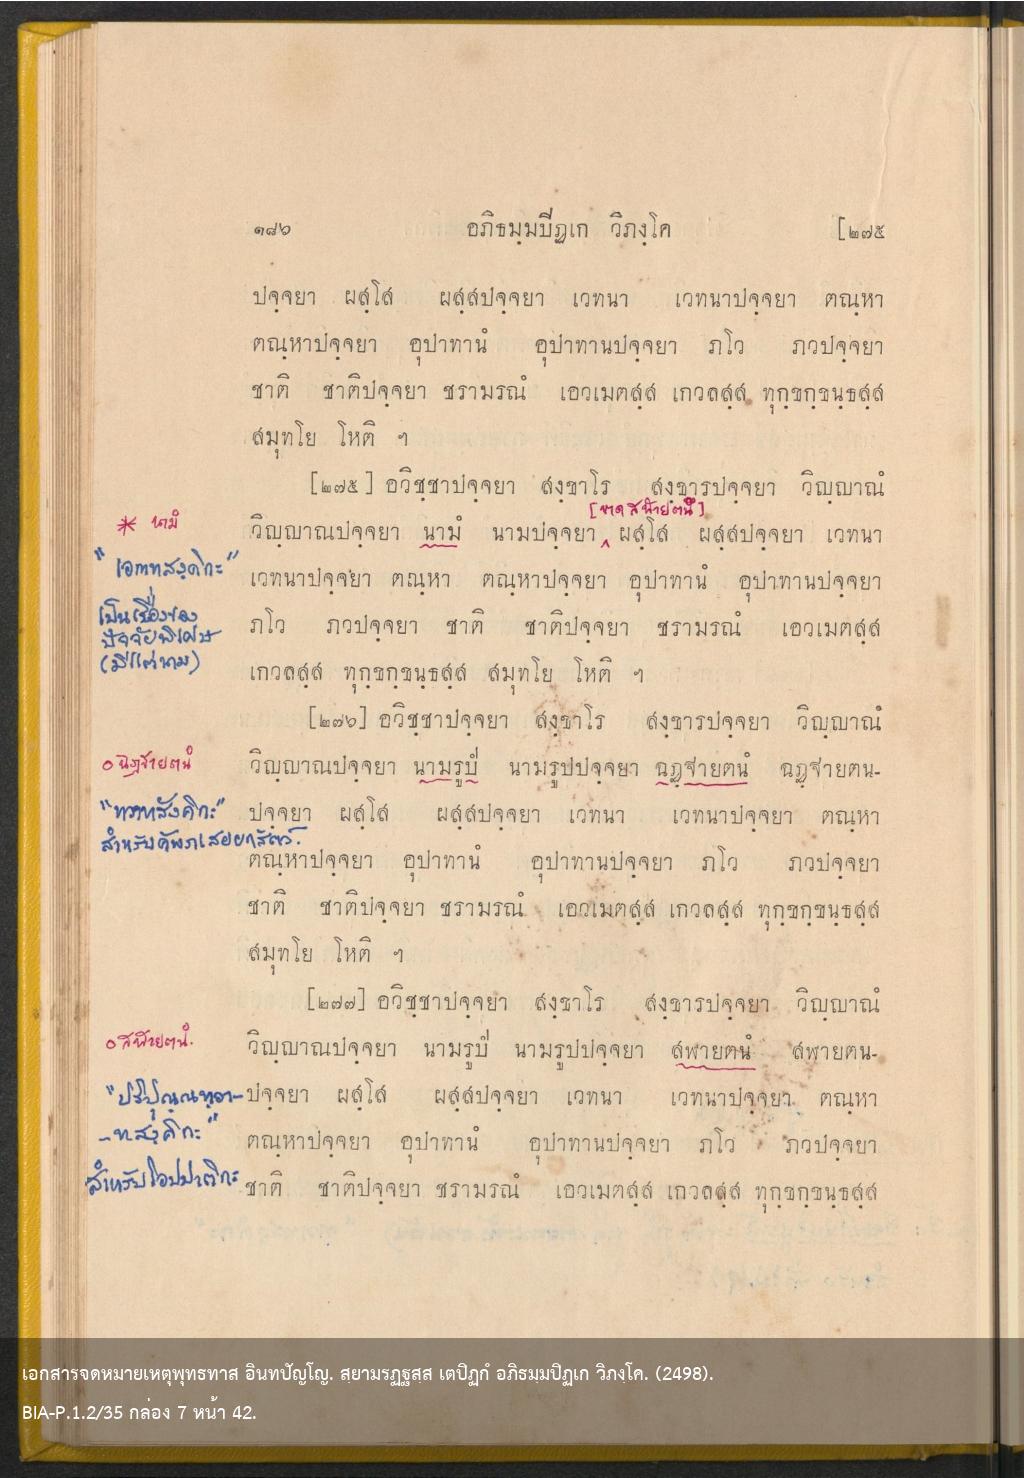 ๑๘๖ อภิธมฺมปิฏเก วิภงฺโค [๒๗๕
ปจฺจยา ผสฺโส ผสฺสปจฺจยา เวทนา เวทนาปจฺจยา ตณฺหา
ตณฺหาปจฺจยา อุปาทานํ อุปาทานปจฺจยา ภโว ภวปจฺจยา
ชาติ ชาติปจฺจยา ชรามรณํ เอวเมตสฺส เกวลสฺส ทุกฺขกฺขนฺธสฺส
สมุทโย โหติ ฯ
[๒๗๕] อวิชฺชาปจฺจยา สงฺขาโร สงฺขารปจฺจยา วิญฺญาณํ
[ขาด สฬายตนํ]
* นามํ
วิญฺญาณปจฺจยา นามํ นามปจฺจยา ‸ ผสฺโส ผสฺสปจฺจยา เวทนา
"เอกาทสงฺคิกะ"
เวทนาปจฺจยา ตณฺหา ตณฺหาปจฺจยา อุปาทานํ อุปาทานปจฺจยา
เป็นเรื่องของ
ภโว ภวปจฺจยา ชาติ ชาติปจฺจยา ชรามรณํ เอวเมตสฺส
ปัจจัยพิเศษ
(มีแต่นาม)
เกวลสฺส ทุกฺขกฺขนฺธสฺส สมุทโย โหติ ฯ
[๒๗๖] อวิชฺชาปจฺจยา สงฺขาโร สงฺขารปจฺจยา วิญฺญาณํ
๐ ฉฏฺฐายตนํ
วิญฺญาณปจฺจยา นามรูปํ นามรูปปจฺจยา ฉฏฺฐายตนํ ฉฏฺฐายตน-
"ทวาทสังคิกะ"
ปจฺจยา ผสฺโส ผสฺสปจฺจยา เวทนา เวทนาปจฺจยา ตณฺหา
สำหรับคัพภเสยยกสัตว์.
ตณฺหาปจฺจยา อุปาทานํ อุปาทานปจฺจยา ภโว ภวปจฺจยา
ชาติ ชาติปจฺจยา ชรามรณํ เอวเมตสฺส เกวลสฺส ทุกฺขกฺขนฺธสฺส
สมุทโย โหติ ฯ
[๒๗๗] อวิชฺชาปจฺจยา สงฺขาโร สงฺขารปจฺจยา วิญฺญาณํ
๐ สฬายตนํ.
วิญฺญาณปจฺจยา นามรูปํ นามรูปปจฺจยา สฬายตนํ สฬายตน-
"ปริปุณฺณทฺวา-
ปจฺจยา ผสฺโส ผสฺสปจฺจยา เวทนา เวทนาปจฺจยา ตณฺหา
-ทสงฺคิกะ"
ตณฺหาปจฺจยา อุปาทานํ อุปาทานปจฺจยา ภโว ภวปจฺจยา
สำหรับโอปปาติกะ
ชาติ ชาติปจฺจยา ชรามรณํ เอวเมตสฺส เกวลสฺส ทุกฺขกฺขนฺธสฺส
เอกสารจดหมายเหตุพุทธทาส อินทปัญโญ. สฺยามรฏฺฐสฺส เตปิฏกํ อภิธมฺมปิฏเก วิภงฺโค. (2498).
BIA-P.1.2/35 กล่อง 7 หน้า 42.